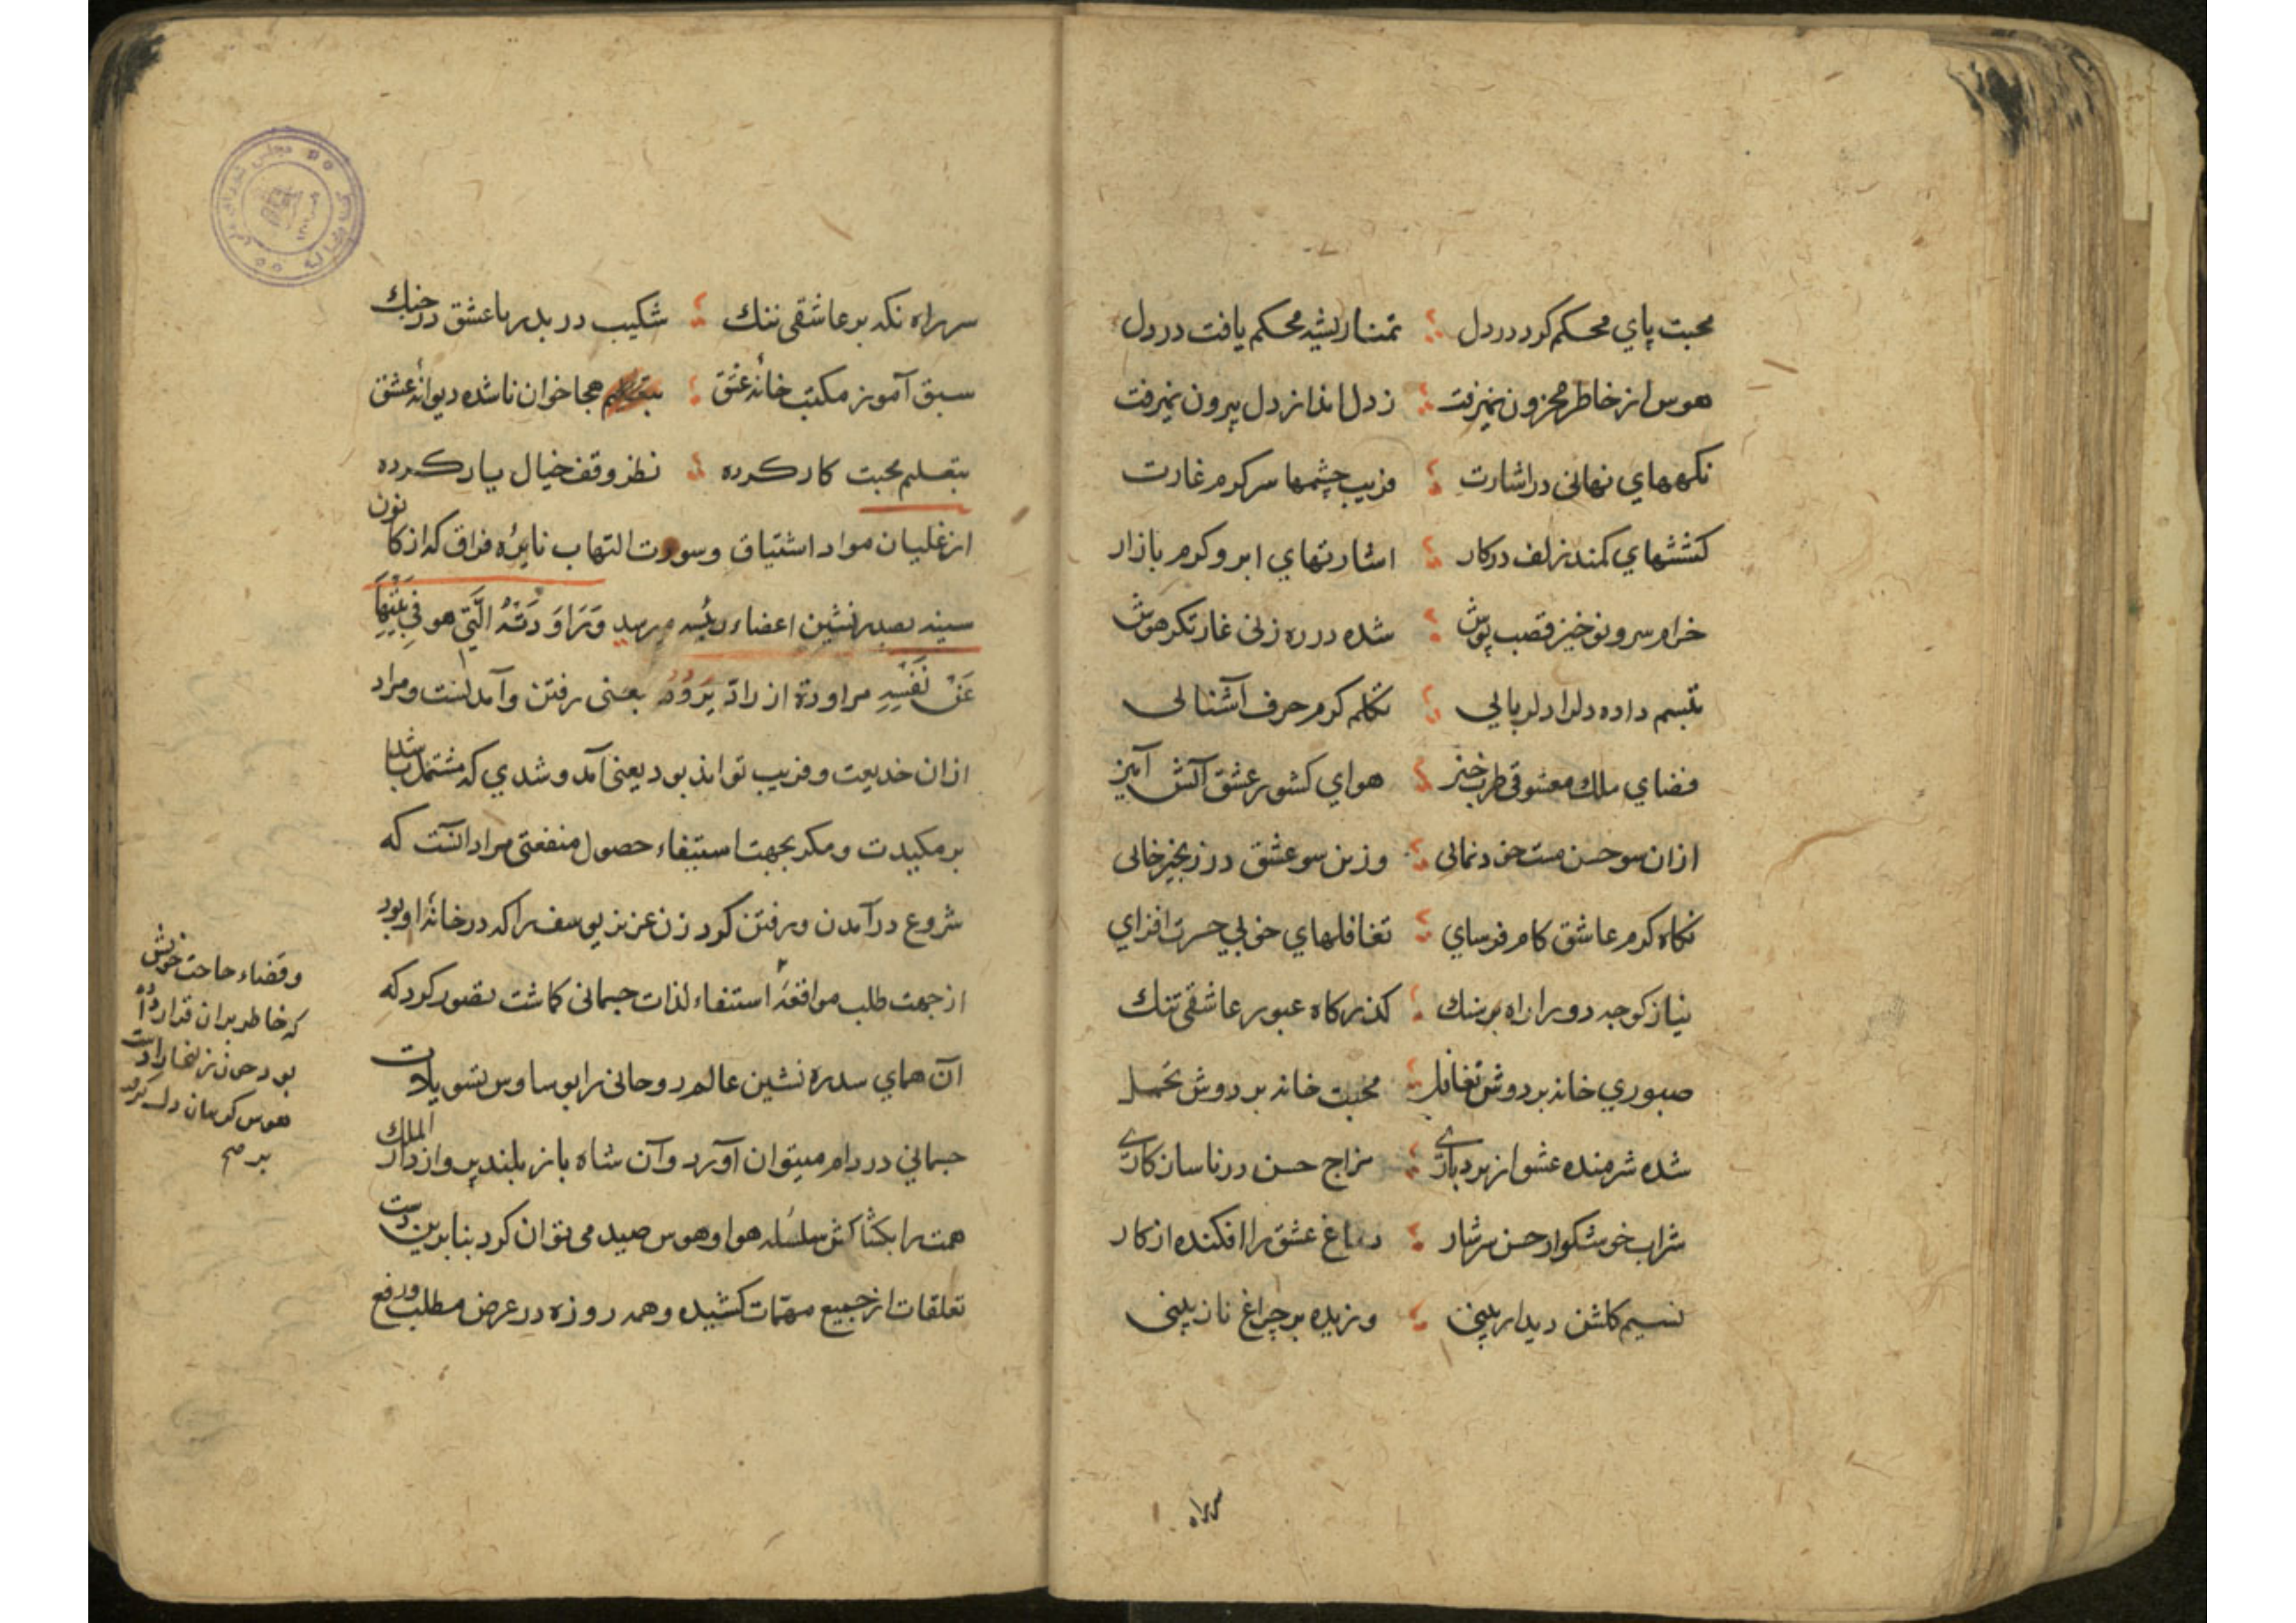 محبت پاي محكم كرد در دل تمنا ريشه محكم يافت در دل
هوس از خاطر محزون نميرفت ز دل اندازدل بيرون نميرفت
نكههاي نهانى در اشارت فريب چشمها سركرم غارت
كششهاي كمند زلف در كار اشارتهاي ابرو كرم بازار
خرام سرو نوخيز قصب پوش شده در ره زنى غارتكر هوش
تبسم داده دل را دلربايي تكلم كرم حرف آشنائى
فضاي ملك معشوقى طرب خيز هواي كشور عشق آتش آميز
ازان سو حسن مست خودنمائى وزين سو عشق در زنجيرخائى
نكاه كرم عاشق كام فرساي تغافلهاي خوبي حسرت افزاي
نياز كوچه دو را راه بر سنك كذركاه عبور عاشقى تنك
صبوري خانه بر دوش تغافل محبت خانه بر دوش تحمل
شده شرمنده عشق از بردبارى مزاج حسن در ناسازكارى
شراب خوشكوار حسن سرشار دماغ عشق را افكنده از كار
نسيم كلشن ديدار بينى وزيده بر چراغ نازنينى
سر راه
سر راه نكه بر عاشقى تنك شكيب در بدر با عشق در جنك
سبق آموز مكتب خانۀ عشق هجا خوان ناشده ديوانۀ عشق
بتعليم محبت كار كرده نظر وقف خيال يار كرده
از غليان مواد اشتياق وسورت التهاب نايرۀ فراق كه از كانون
سينه بصدر نشين اعضاء رئيسه ميرسيد وَرَاوَدَتْهُ الَّتي هو في بَيْتِهَا
عَنْ نَفْسِهِ مراودة از رادَ يَرُودُ بمعنى رفتن وآمدنست ومراد
ازان خديعت وفريب تواند بود يعنى آمد وشدي كه مشتمل باشد
بر مكيدت ومكر بجهت استيفاء حصول منفعتى مراد آنست كه
شروع در آمدن ورفتن كرد زن عزيز يوسف را كه در خانۀ او بود
از جهت طلب مواقعۀ استيفاء لذات جسمانى كماشت تصور كرد كه
آن هماي سدره نشين عالم روحانى را بوساوس تسويلات
جسماني در دام ميتوان آورد وآن شاه باز بلند پرواز دار الملك
همت را بكشاكش سلسله هوا وهوس صيد مى توان كرد بنابرين دست
تعلقات از جميع مهمّات كشيده وهمه روزه در عرض مطلب ورفع
وقضاء حاجت خويش
كه خاطر بر ان قرار داده
بود چون زليخا
هوس كرسان دل
بر صح